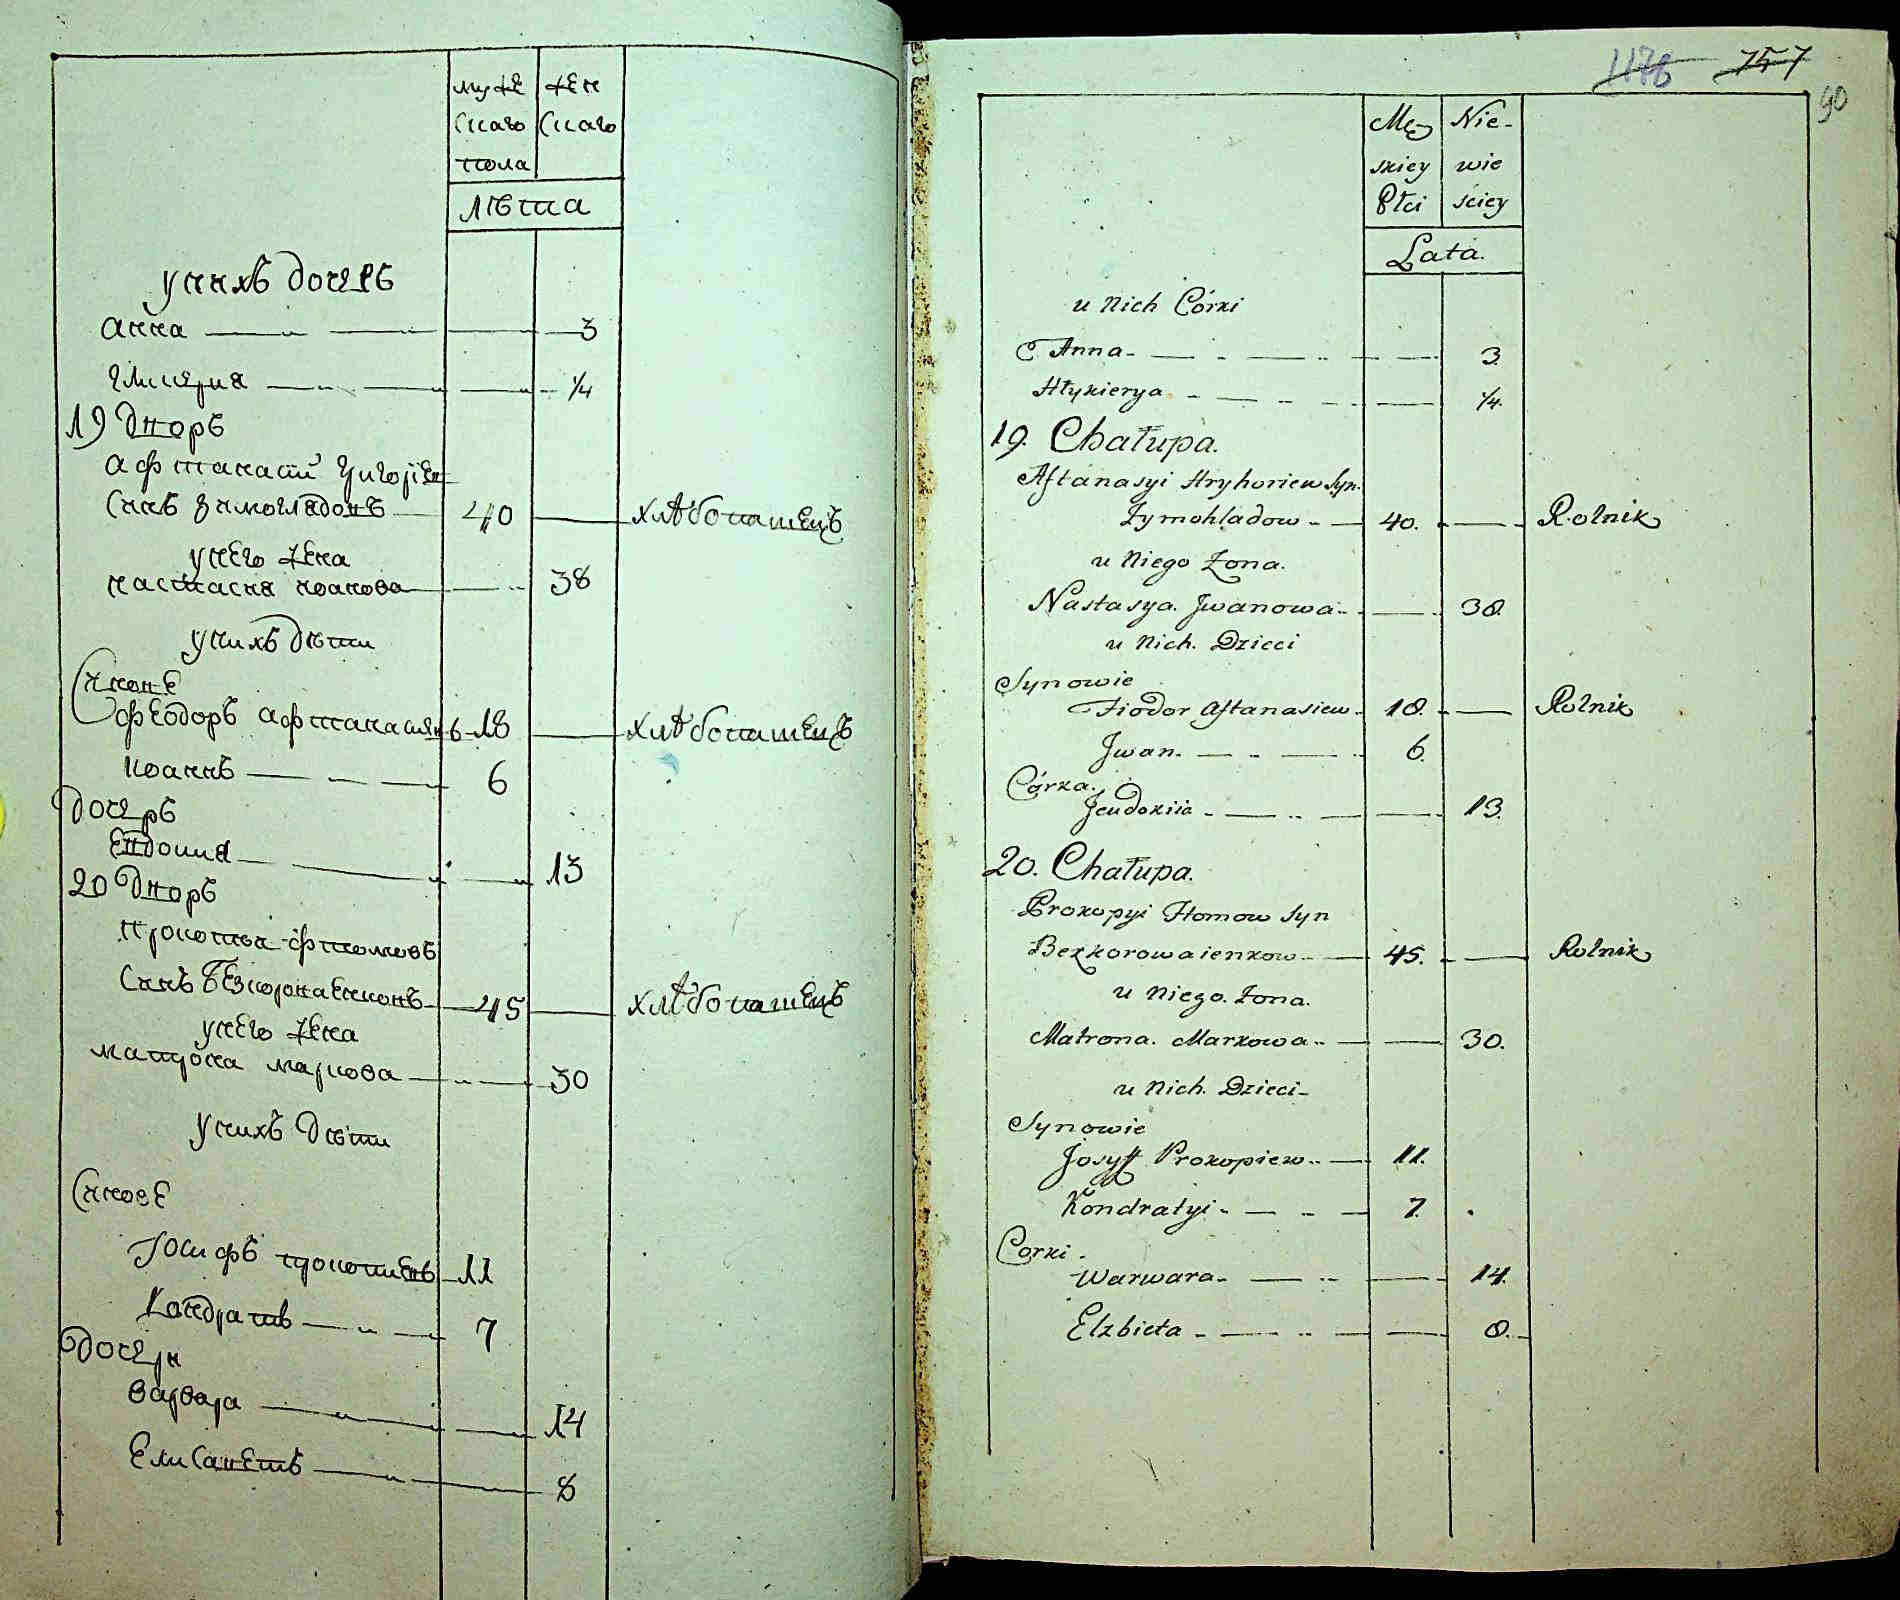 муже
скаго
пола
жен
скаго
лѣта
у нихъ дочерѣ
анна 3
гликерия 1/4
19 дворъ
афтанасий григориев
синъ зимогладовъ 40 хлѣбопашецъ
у него жена
настасия иоанова 38
у нихъ дѣти
синове
феодоръ афтанасиевъ 18 хлѣбопашецъ
иоаннъ 6
дочерь
евдокия 13
20 дворъ
прокопий фтомовъ
синъ безкороваенковъ 45 хлѣбопашецъ
у него жена
матрона маркова 30
у нихъ дѣти
синове
иосифъ прокопиевъ 11
кондратъ 7
дочери
варвара 14
елисаветъ 8
1176 757
90
Mę
skiey
Płci
Nie-
wie
ściey
Lata.
u Nich Córki
Anna 3
Hłykierya 1/4.
19. Chałupa.
Aftanasyi Hryhoriew Syn.
Zymohladow 40. Rolnik
u Niego Żona.
Nastasya. Jwanowa 38.
u Nich. Dzieci
Synowie
Fiodor Aftanasiew 18. Rolnik
Jwan. 6.
Córka.
Jeudokiia 13.
20. Chałupa.
Prokopyi Htomow Syn
Bezkorowaienkow 45. Rolnik
u Niego. Żona.
Matrona. Markowa 30.
u Nich. Dzieci
Synowie
Josyff Prokopiew 11.
Kondratyi 7.
Corki.
Warwara 14.
Elzbieta 8.